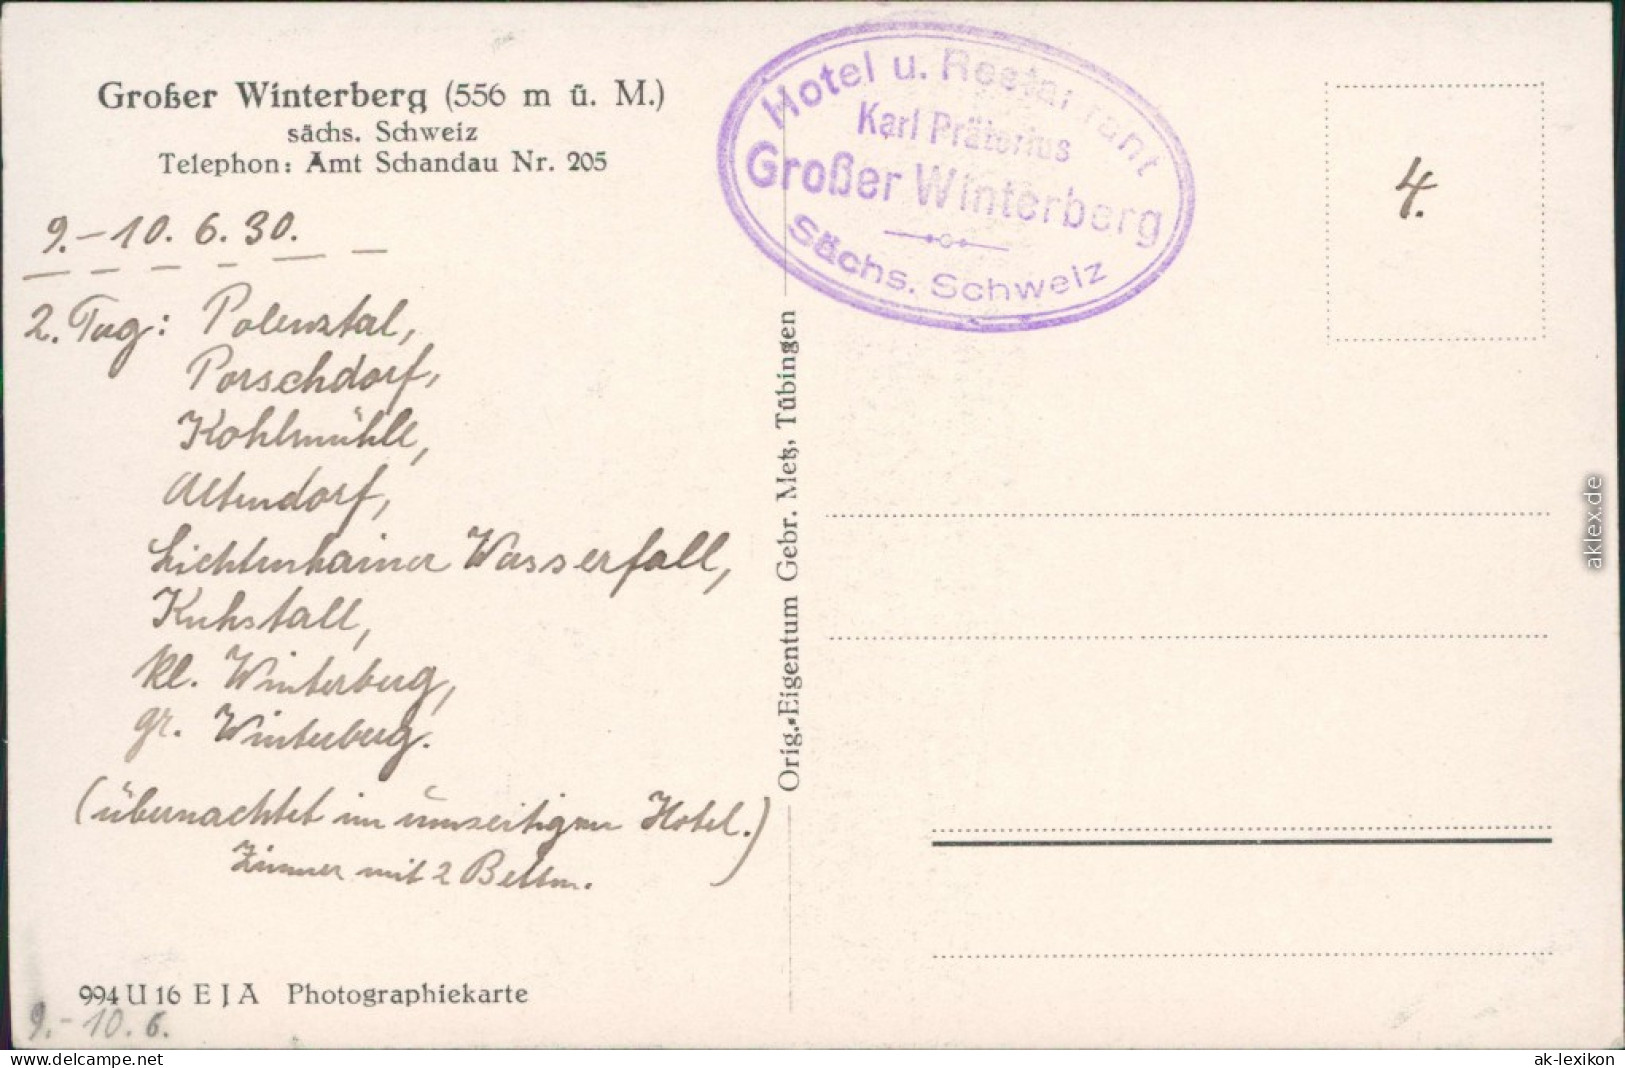 Großer Winterberg (556 m ü. M.)
sächs. Schweiz
Telephon: Amt Schandau Nr. 205
9.-10. 6. 30.
2. Tag: Polenztal,
Porschdorf,
Kohlmühle,
Altendorf,
Lichtenhainer Wasserfall,
Kuhstall,
kl. Winterberg,
gr. Winterberg.
(übernachtet im umseitigen Hotel.)
Zimmer mit 2 Betten.
994 U 16 E J A Photographiekarte
9.-10. 6.
Orig.-Eigentum Gebr. Metz, Tübingen
Hotel u. Restaurant
Karl Prätorius
Großer Winterberg
Sächs. Schweiz
4.
aklex.de
www.delcampe.net
ak-lexikon